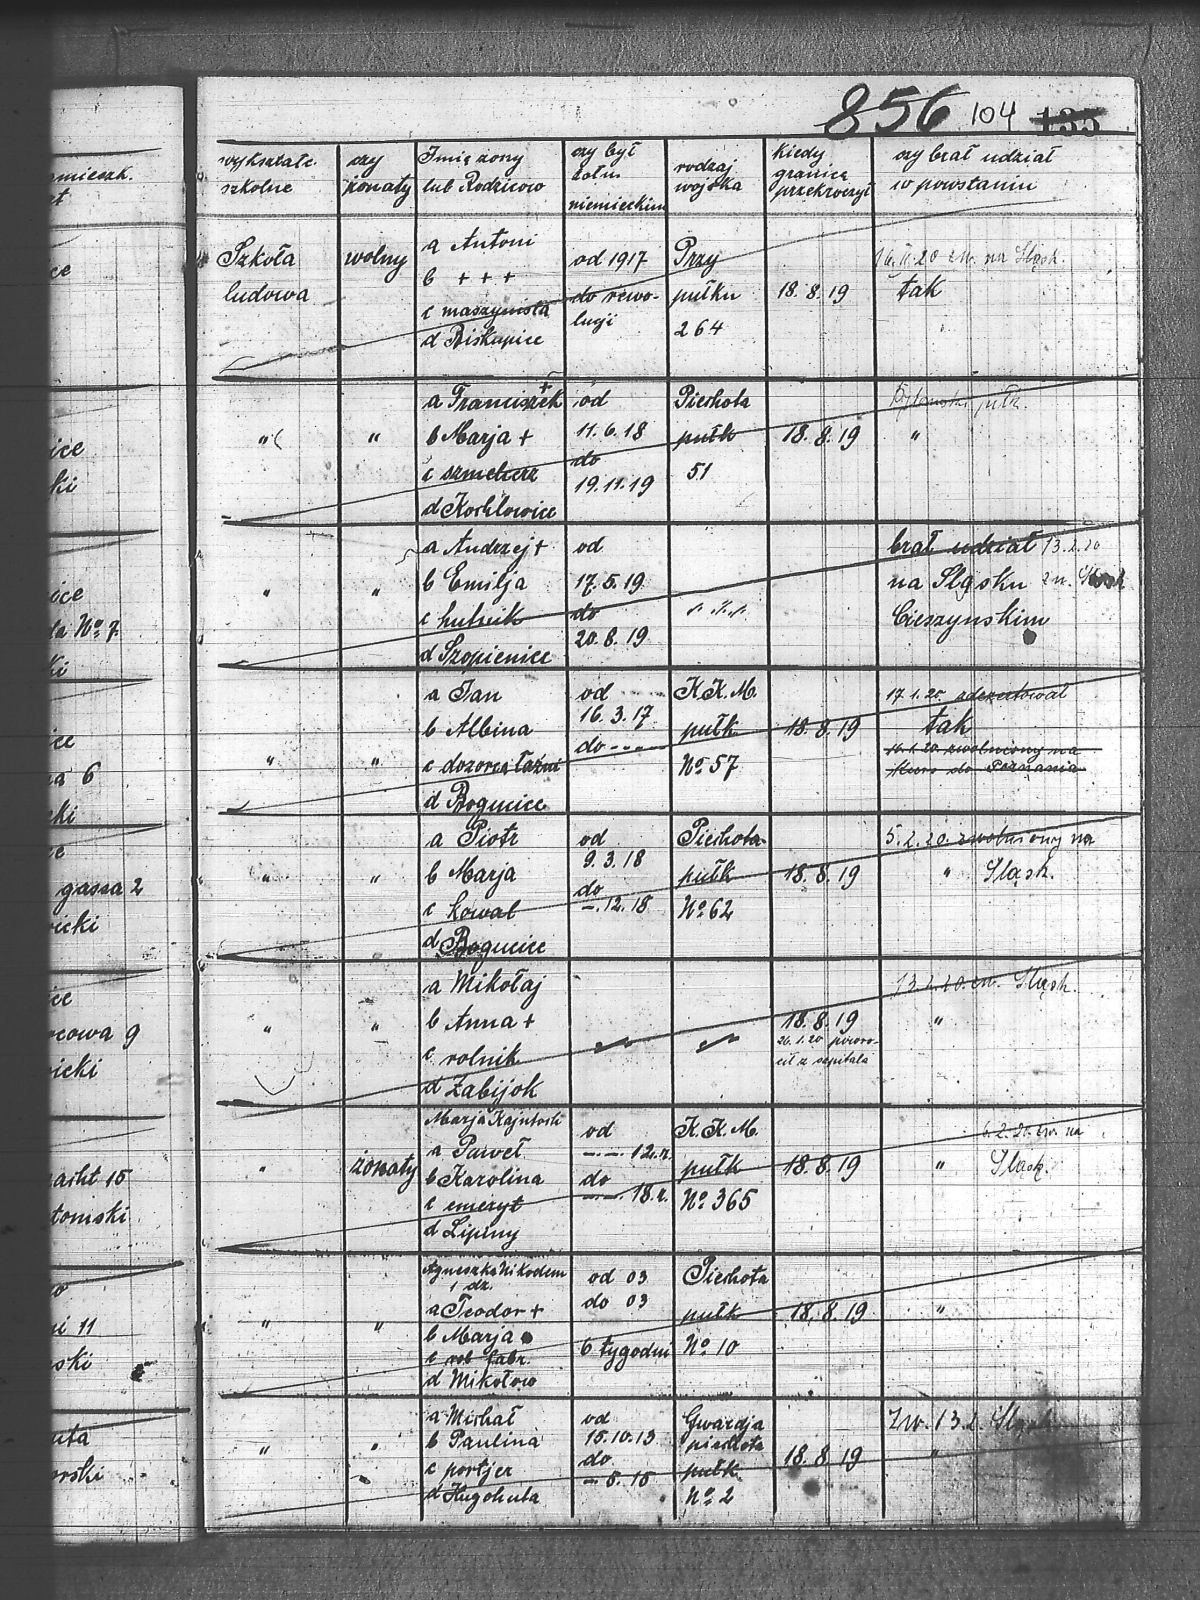 856 104 135
wykształc. szkolne
czy żonaty
Imię żony lub Rodziców
czy był żołn niemieckim
rodzaj wojska
kiedy granicę przekroczył
czy brał udział w powstaniu
Szkoła ludowa
wolny
a Antoni
b + + +
c maszynista
d Biskupice
od 1917
do rewo-
lucji
Przy
pułku
264
18.8.19
na Śląsk.
tak
" "
a Franciszek +
b Marja +
c szmelcerz
d Kochlowice
od
11.6.18
do
19.11.19
Piechota
pułk
51
18.8.19
pułk.
"
" "
a Andrzej +
b Emilja
c hutnik
d Szopienice
od
17.5.19
do
20.8.19
brał udział 13.2.20
na Śląsku zw. Śląsk
Cieszynskim
" "
a Jan
b Albina
c dozorca łaźni
d Bogucice
od
16.3.17
do ----
K.K.M.
pułk
No 57
18.8.19
17.1.20 zdezertował
tak
zwolniony na
kurs do Poznania
" "
a Piotr
b Marja
c kowal
d Bogucice
od
9.3.18
do
-.12.18
Piechota
pułk
No 62
18.8.19
5.2.20. zwolniony na
" Śląsk.
" "
a Mikołaj
b Anna +
c rolnik
d Zabijok
18.8.19
26.1.20 powro-
cił z szpitala
13.2.20. zw. Śląsk.
"
"
żonaty
Marja
a Paweł
b Karolina
c emeryt
d Lipiny
od
-.-. 12.r.
do
-.-. 18.r.
K.K.M.
pułk
No 365
18.8.19
6.2.20. zw. na
" Śląsk.
" "
Agneszka Nikodem
1 dz.
a Teodor +
b Marja
c rob fabr.
d Mikołow
od 03
do 03
6 tygodni
Piechota
pułk
No 10
18.8.19
"
" "
a Michał
b Paulina
c portjer
d Hugohuta
od
15.10.13
do
-.8.15
Gwardja
piechota
pułk
No 2
18.8.19
Zw. 13.2. Śląsk
"
mieszk.
ice
ki
ice
la No 7.
ki
ice
a 6
ki
gassa 2
icki
ice
cowa 9
icki
acht 15
tomski
i 11
ski
uta
orski